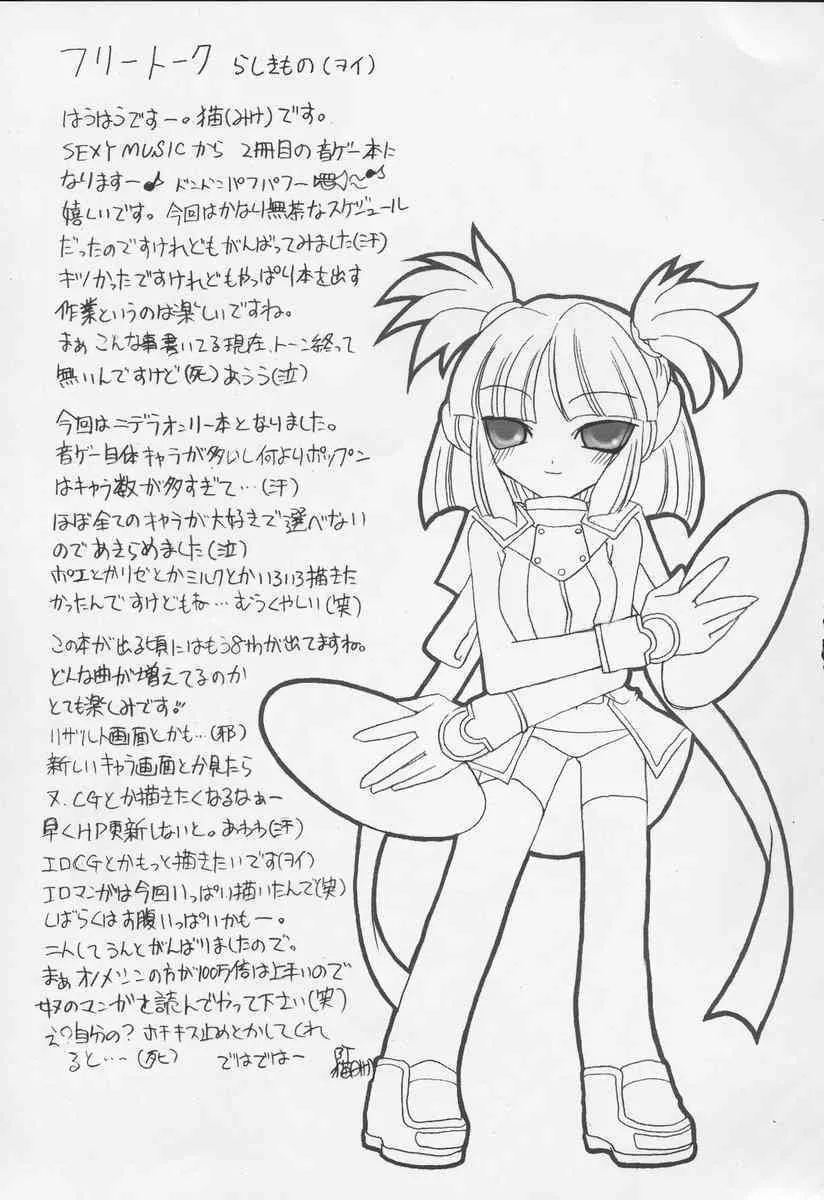 フリートーク らしきもの(ヲイ)
はうはうですー。猫(みけ)です。
SEXY MUSICから 2冊目の音ゲー本に
なりますー♪ ドンドンパフパフー
嬉しいです。今回はかなり無茶なスケジュール
だったのですけれどもがんばってみました(汗)
キツかったですけれどもやっぱり本を出す
作業というのは楽しいですね。
まぁ こんな事書いてる現在、トーン終って
無いんですけど(死)あうう(泣)
今回はニデラオンリー本となりました。
音ゲー自体キャラが多いし何よりポップン
はキャラ数が多すぎて…(汗)
ほぼ全てのキャラが大好きで選べない
のであきらめました(泣)
ポエとかリゼとかミルクとかいろいろ描きた
かったんですけどもね…むうくやしい(笑)
この本が出る頃にはもう8thが出てますね。
どんな曲が増えてるのか
とても楽しみです!!
リザルト画面とかも…(邪)
新しいキャラ画面とか見たら
又、CGとか描きたくなるなぁー
早くHP更新しないと。あわわ(汗)
エロCGとかもっと描きたいです(ヲイ)
エロマンガは今回いっぱい描いたんで(笑)
しばらくはお腹いっぱいかもー。
二人してうんとがんばりましたので。
まぁオノメシンの方が100万倍は上手いので
奴のマンガを読んでやって下さい(笑)
え?自分の?ホチキス止めとかしてくれ
ると…(死) ではではー